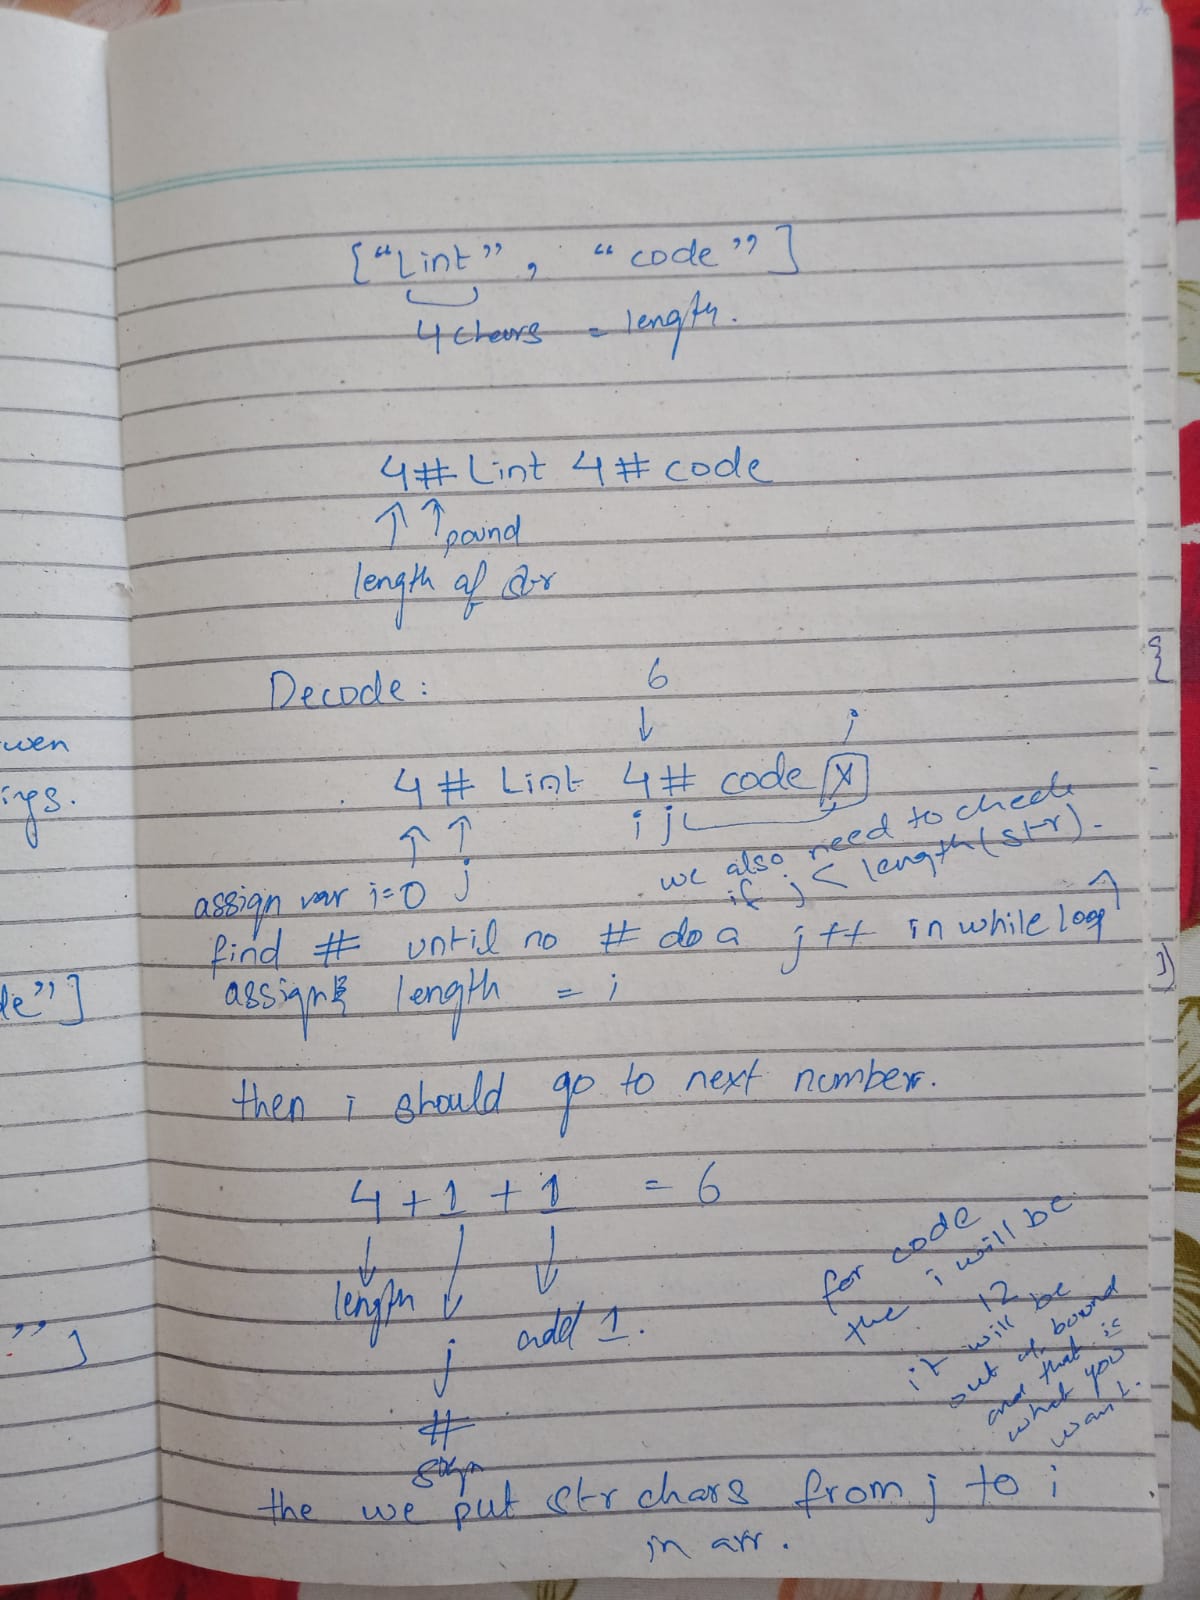 ["Lint", "code"]
4 chars = length.
4# Lint 4# code
pound
length of str
Decode:
6
j
4 # Lint 4# code x
i j
we also need to check
if j < length(str).
assign var i=0 j
find # until no # do a j++ in while loop
assign length = i
then i should go to next number.
4 + 1 + 1 = 6
length
j
add 1.
#
sign
for code
the i will be
12
it will be
out of bound
and that is
what you
want.
the we put str chars from j to i
in arr.
wen
ings.
de"]
"]